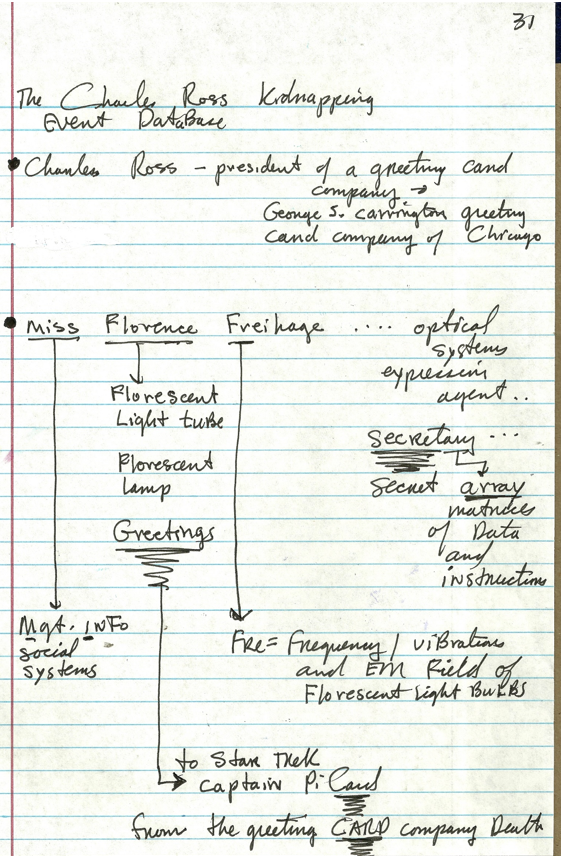 31
The Charles Ross Kidnapping
Event DataBase
Charles Ross – president of a greeting card
company →
George S. Carrington greeting
card company of Chicago
Miss Florence Freihage .... optical
systems
expression
agent ..
Florescent
Light tube
Florescent
lamp
Secretary ...
Secret array
matrices
of Data
and
instructions
Greetings
Mgt. info
social
systems
FRE = Frequency / viBrations
and EM Field of
Florescent Light BulBs
to Star Trek
captain PiCard
from the greeting CARD company Death